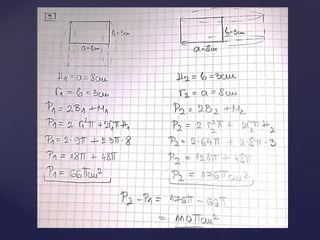 b=3cm
a=8cm
b=3cm
a=8cm
H₁ = a = 8cm
r₁ = b = 3cm
P₁ = 2B₁ + M₁
P₁ = 2·r₁²π + 2r₁πH₁
P₁ = 2·9π + 2·3π·8
P₁ = 18π + 48π
P₁ = 66πcm²
H₂ = b = 3cm
r₂ = a = 8cm
P₂ = 2B₂ + M₂
P₂ = 2·r₂²π + 2r₂πH₂
P₂ = 2·64π + 2·8π·3
P₂ = 128π + 48π
P₂ = 176πcm²
P₂ - P₁ = 176π - 66π
= 110πcm²